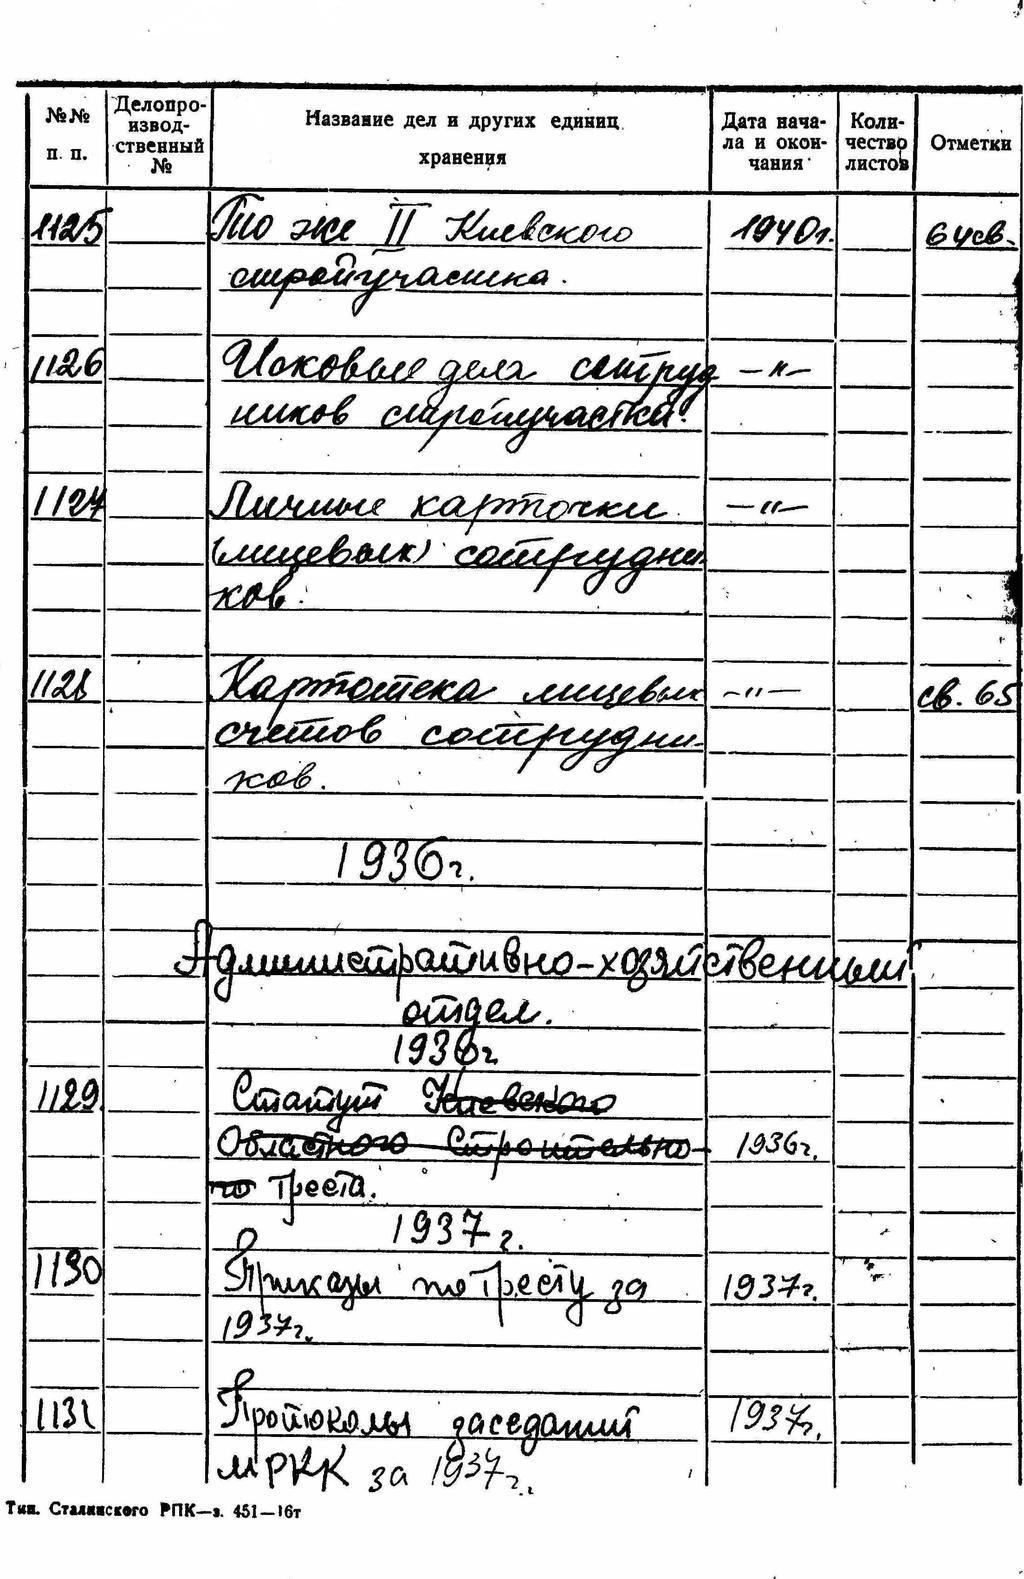 №№ п. п.
Делопро-
извод-
ственный
№
Название дел и других единиц
хранения
Дата нача-
ла и окон-
чания
Коли-
чество
листов
Отметки
1125 То же II Киевского 1940г. 64св.
стройучастка.
1126 Исковые дела сотруд -"-
ников стройучастка.
1127 Личные карточки -"-
(лицевых) сотрудни-
ков.
1128 Картотека лицевых -"- св. 65
счетов сотрудни-
ков.
1936г.
Административно-хозяйственный
отдел.
1936г
1129. Статут Киевского
Областного Строительно- 1936г.
го треста.
1937г.
1130 Приказы по Тресту за 1937г.
1937г.
1131 Протоколы заседаний 1937г.
МРКК за 1937г.
Тип. Сталинского РПК—з. 451—16т